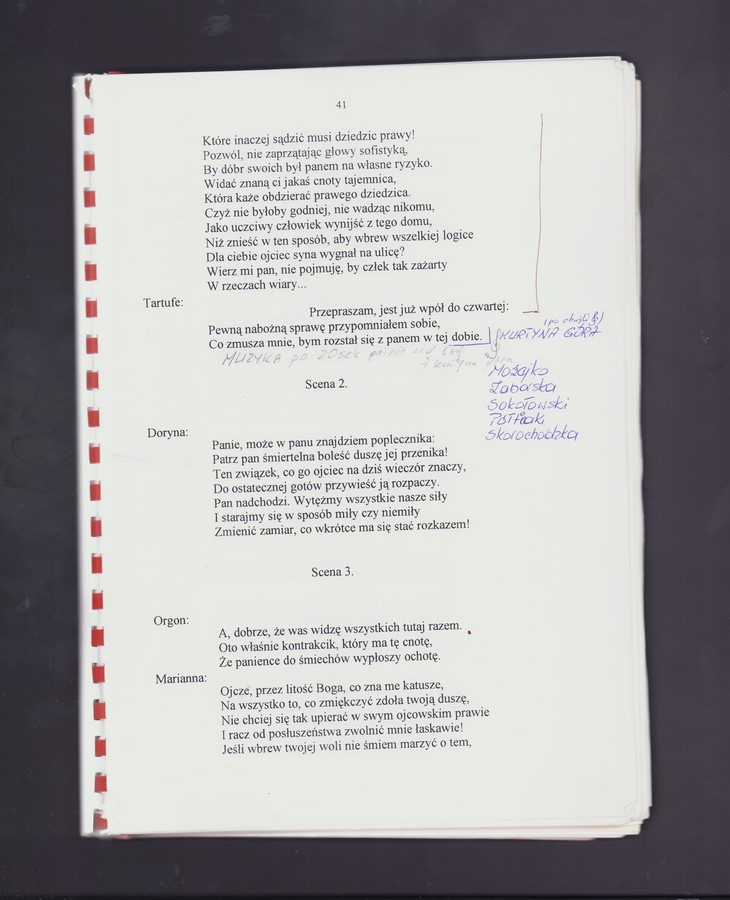 41
Które inaczej sądzić musi dziedzic prawy!
Pozwól, nie zaprzątając głowy sofistyką,
By dóbr swoich był panem na własne ryzyko.
Widać znaną ci jakaś cnoty tajemnica,
Która każe obdzierać prawego dziedzica.
Czyż nie byłoby godniej, nie wadząc nikomu,
Jako uczciwy człowiek wynijść z tego domu,
Niż znieść w ten sposób, aby wbrew wszelkiej logice
Dla ciebie ojciec syna wygnał na ulicę?
Wierz mi pan, nie pojmuję, by człek tak zażarty
W rzeczach wiary...
Tartufe:
Przepraszam, jest już wpół do czwartej:
Pewną nabożną sprawę przypomniałem sobie,
Co zmusza mnie, bym rozstał się z panem w tej dobie.
KURTYNA GÓRA
MUZYKA po 20sek
Możejko
Zaborska
Sokołowski
Skorochodzka
Scena 2.
Doryna:
Panie, może w panu znajdziem poplecznika:
Patrz pan śmiertelna boleść duszę jej przenika!
Ten związek, co go ojciec na dziś wieczór znaczy,
Do ostatecznej gotów przywieść ją rozpaczy.
Pan nadchodzi. Wytężmy wszystkie nasze siły
I starajmy się w sposób miły czy niemiły
Zmienić zamiar, co wkrótce ma się stać rozkazem!
Scena 3.
Orgon:
A, dobrze, że was widzę wszystkich tutaj razem.
Oto właśnie kontrakcik, który ma tę cnotę,
Że panience do śmiechów wypłoszy ochotę.
Marianna:
Ojcze, przez litość Boga, co zna me katusze,
Na wszystko to, co zmiękczyć zdoła twoją duszę,
Nie chciej się tak upierać w swym ojcowskim prawie
I racz od posłuszeństwa zwolnić mnie łaskawie!
Jeśli wbrew twojej woli nie śmiem marzyć o tem,